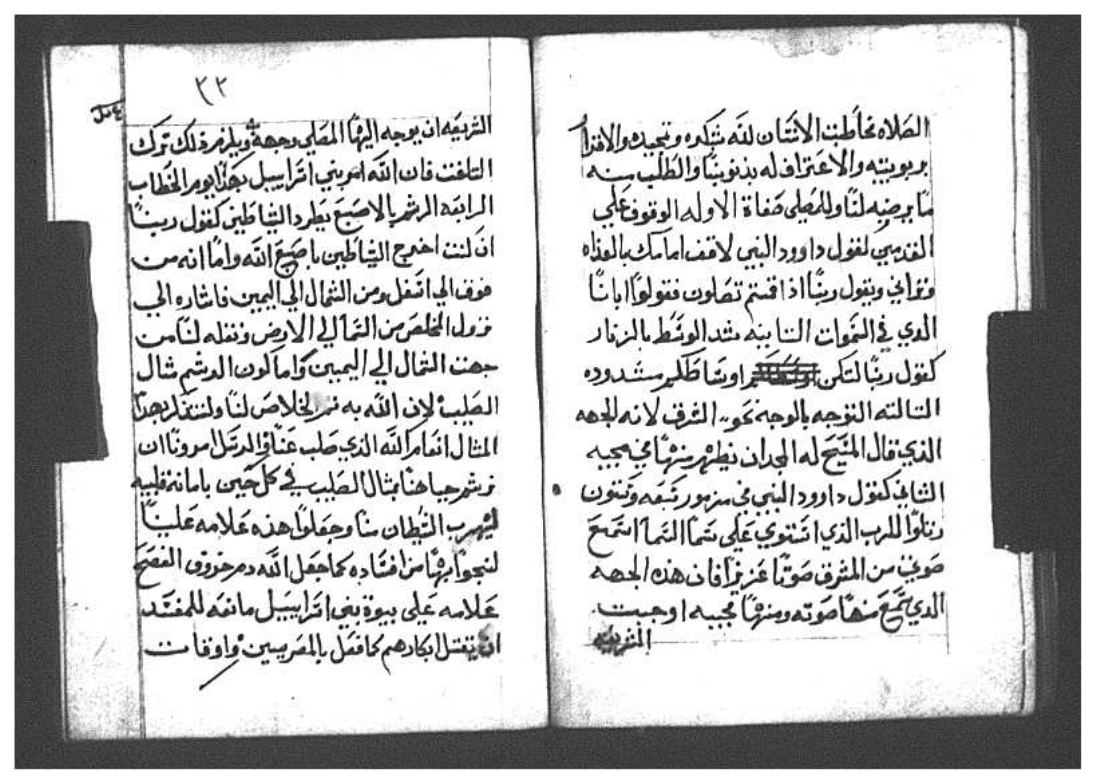 الصلاه مخاطبت الانسان لله بشكره وتمجيده والاقرار
بربوبيته والاعتراف له بذنوبنا والطلب منه
ما يرضيه لنا وللمصلى صفاة الاوله الوقوف علي
القدمين لقول داوود النبي لاقف امامك بالغداه
وتراني ويقول ربنا اذا قمتم تصلون فقولوا ابانا
الدي في السموات التانيه شد الوسط بالزنار
كقول ربنا لتكن اوساطكم مشدوده
التالته التوجه بالوجه نحو الشرق لانه الجهه
الذي قال المسيح له المجد ان يظهر منها في مجيه
الثاني كقول داوود النبي في مزمور وستون
رتلوا للرب الذي استوي علي سما السما اسمع
صوته من المشرق صوتا عزيزا فان هذه الجهه
الدي سمع منها صوته ومنها مجيه اوجبت
الشريعه
٣٣
الشريعه ان يوجه اليها المصلي وجهه ويلزم ذلك ترك
التلفت فان الله امر بني اسراييل بهذا يوم الخطاب
الرابعه الرشم بالاصبع يطرد الشياطين كقول ربنا
ان كنت اخرج الشياطين باصبع الله واما انه من
فوق الي اسفل ومن الشمال الي اليمين فاشاره الي
نزول المخلص من السما الي الارض ونقله لنا من
جهت الشمال الي اليمين واما كون الرشم مثال
الصليب لان الله به الخلاص لنا ولنتذكر بهذا
المثال انعام الله الذي صلب عنا والرسل امرونا ان
نرشم جباهنا بمثال الصليب في كل حين بامانه قلبيه
ليهرب الشيطان منا وجعلوا هذه علامه علينا
لننجوا بها من افساده كما جعل الله دم خروف الفصح
علامه على بيوة بني اسراييل مانعه للمفسد
ان يقتل ابكارهم كما فعل بالمصريين واوقات